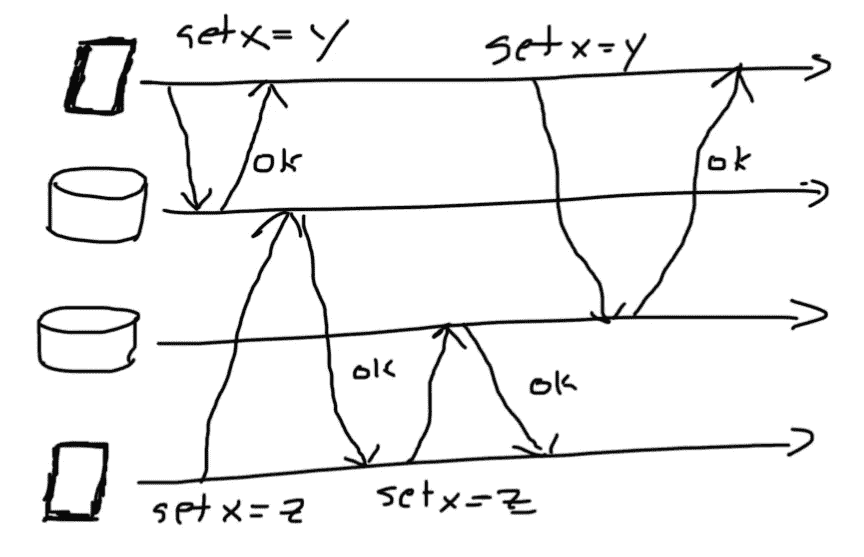 set x = y
set x = y
ok
ok
ok
ok
set x = z
set x = z